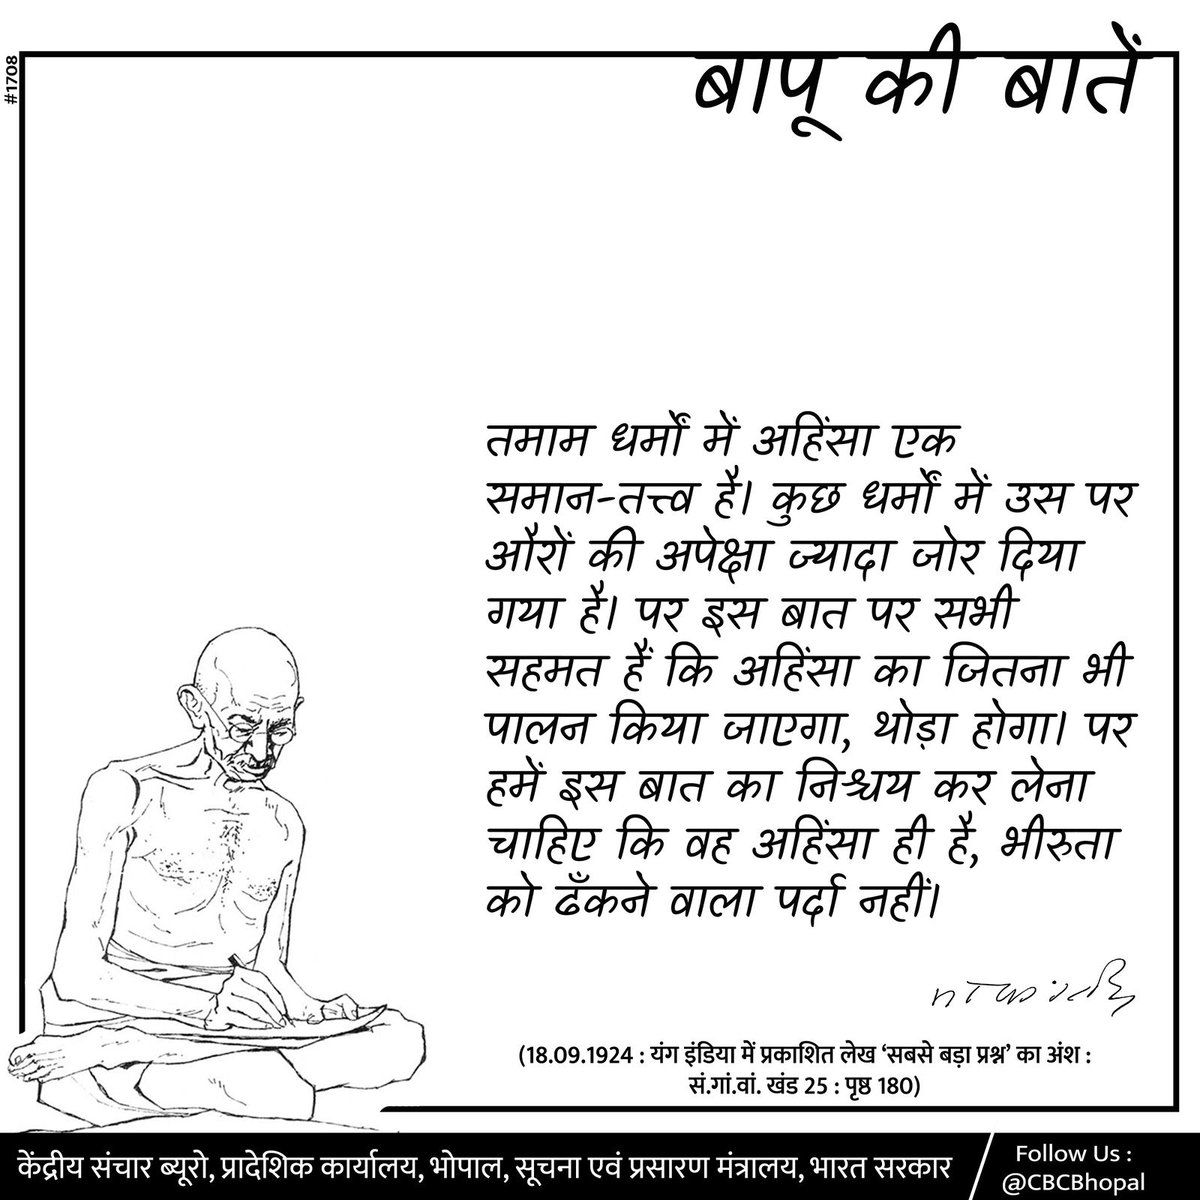 #1708
बापू की बातें
तमाम धर्मों में अहिंसा एक
समान-तत्त्व है। कुछ धर्मों में उस पर
औरों की अपेक्षा ज्यादा जोर दिया
गया है। पर इस बात पर सभी
सहमत हैं कि अहिंसा का जितना भी
पालन किया जाएगा, थोड़ा होगा। पर
हमें इस बात का निश्चय कर लेना
चाहिए कि वह अहिंसा ही है, भीरुता
को ढँकने वाला पर्दा नहीं।
(18.09.1924 : यंग इंडिया में प्रकाशित लेख ‘सबसे बड़ा प्रश्न’ का अंश :
सं.गां.वां. खंड 25 : पृष्ठ 180)
केंद्रीय संचार ब्यूरो, प्रादेशिक कार्यालय, भोपाल, सूचना एवं प्रसारण मंत्रालय, भारत सरकार
Follow Us :
@CBCBhopal